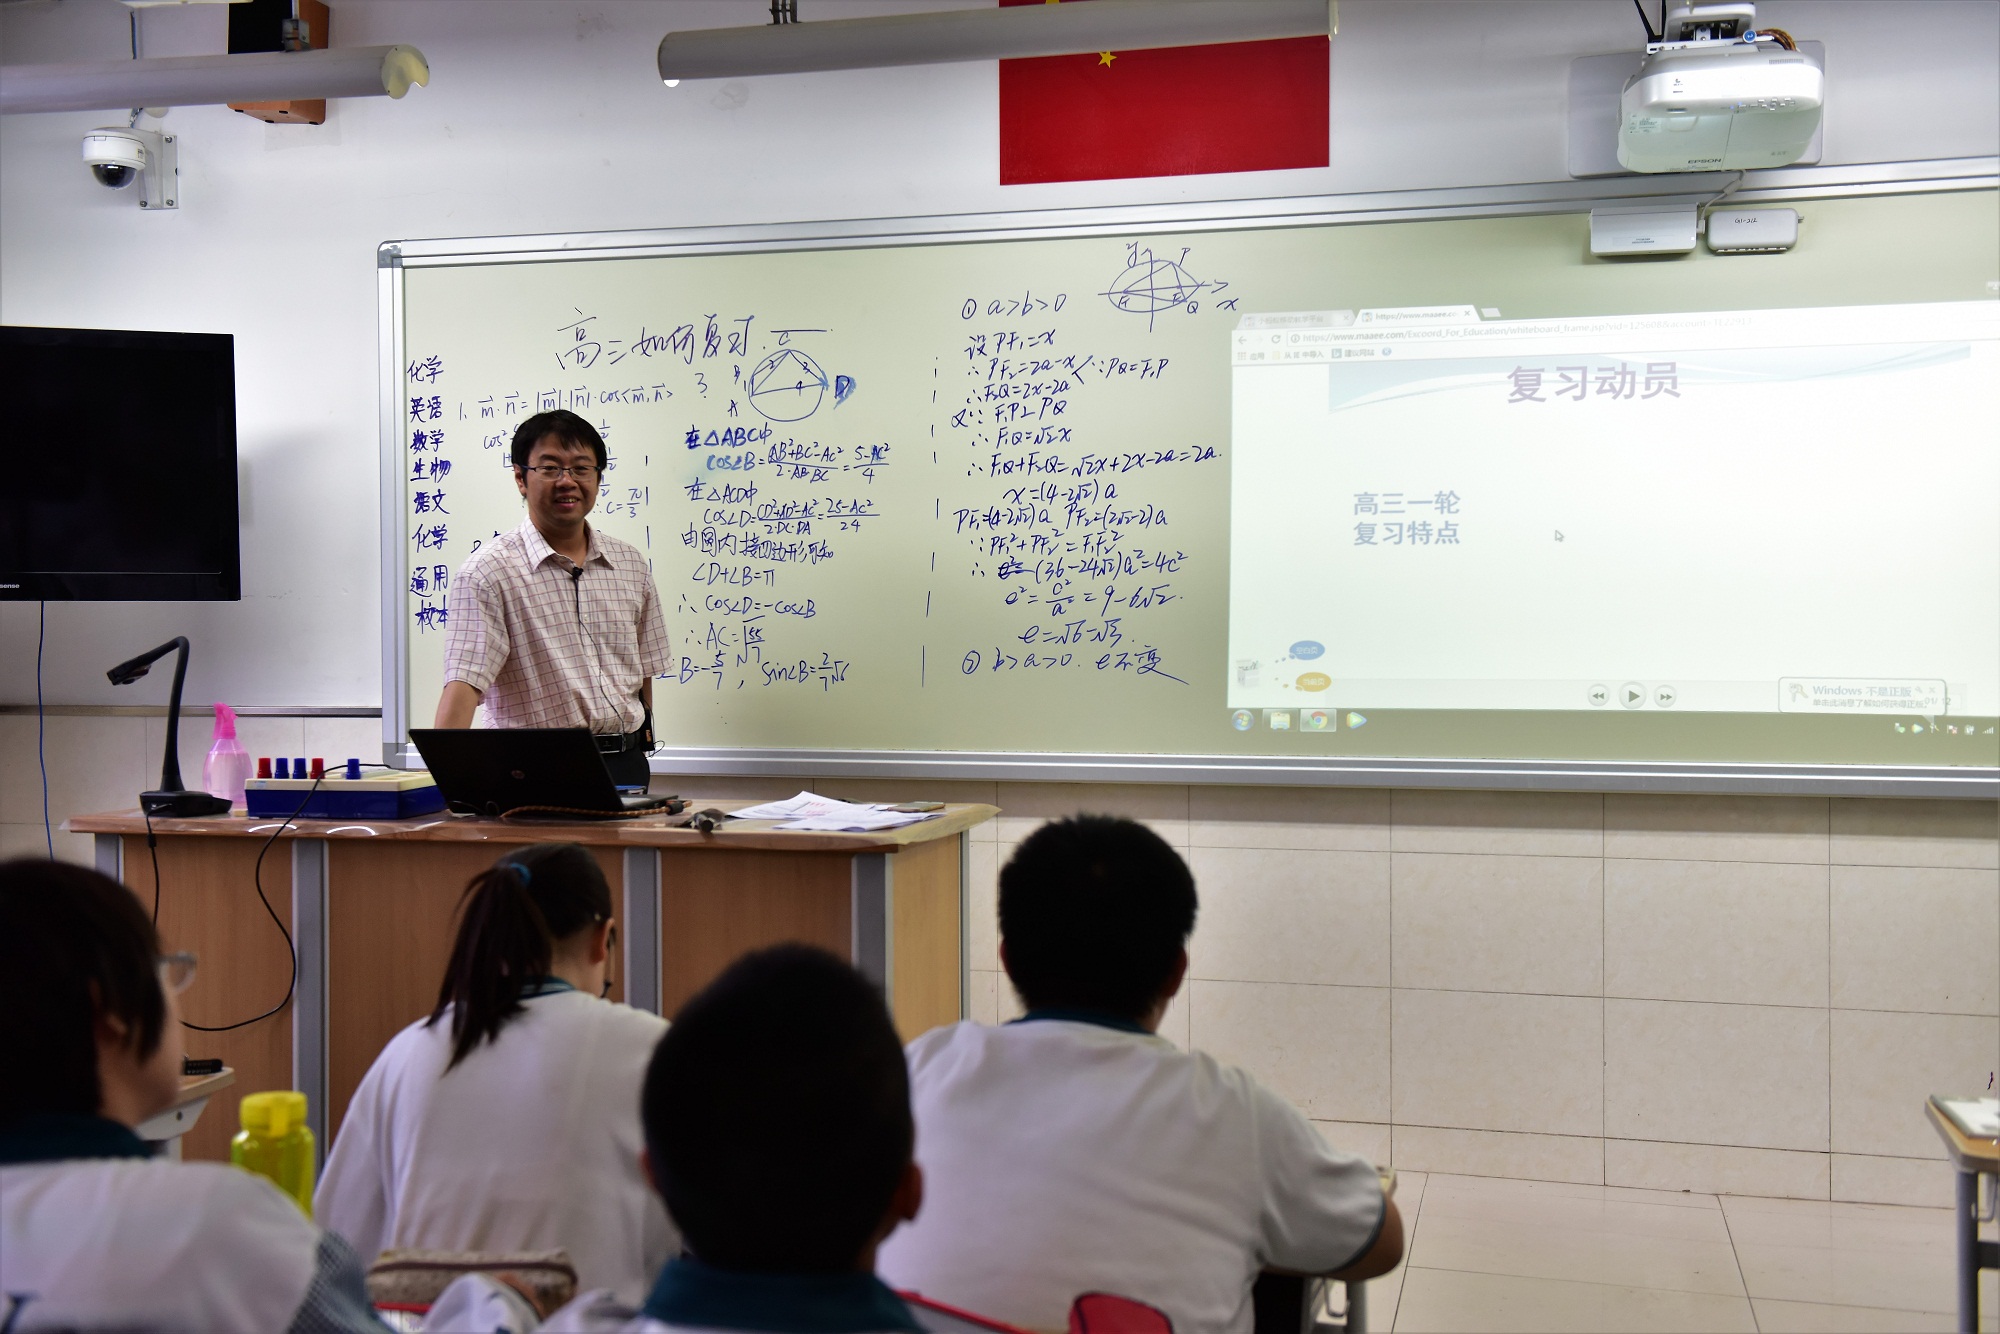 高三如何复习
化学
英语
数学
生物
语文
化学
通用
校本
1、m·n=|m|·|n|·cos<m,n>
C=π/3
C
B
A
D
2
3
4
在△ABC中
cos∠B=(AB²+BC²-AC²)/(2·AB·BC)=(5-AC²)/4
在△ACD中
cos∠D=(CD²+AD²-AC²)/(2·DC·DA)=(25-AC²)/24
由圆内接四边形可知
∠D+∠B=π
∴cos∠D=-cos∠B
∴AC=√(55/7)
∠B=-5/7, sin∠B=2/7√6
y
P
Q
x
① a>b>0
设PF₁=x
∴PF₂=2a-x
∵PQ=F₁P
∴F₂Q=2x-2a
又∵F₁P⊥PQ
∴F₁Q=√2x
∴F₁Q+F₂Q=√2x+2x-2a=2a.
x=(4-2√2)a
PF₁=(4-2√2)a PF₂=(2√2-2)a
∵PF₁²+PF₂²=F₁F₂²
∴(36-24√2)a²=4c²
e²=c²/a²=9-6√2.
e=√6-√3.
② b>a>0. e不变
EPSON
https://www.maaee.co
复习动员
高三一轮
复习特点
Windows 不是正版
单击此消息了解如何获得正版